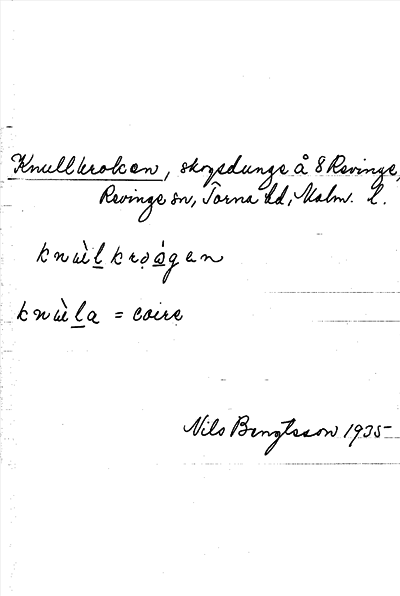 Knullkroken, skogsdunge å 8 Revinge,
Revinge sn, Torna hd, Malm. l.
knùl̲krọágen
knùl̲a = coire
Nils Bengtsson 1935